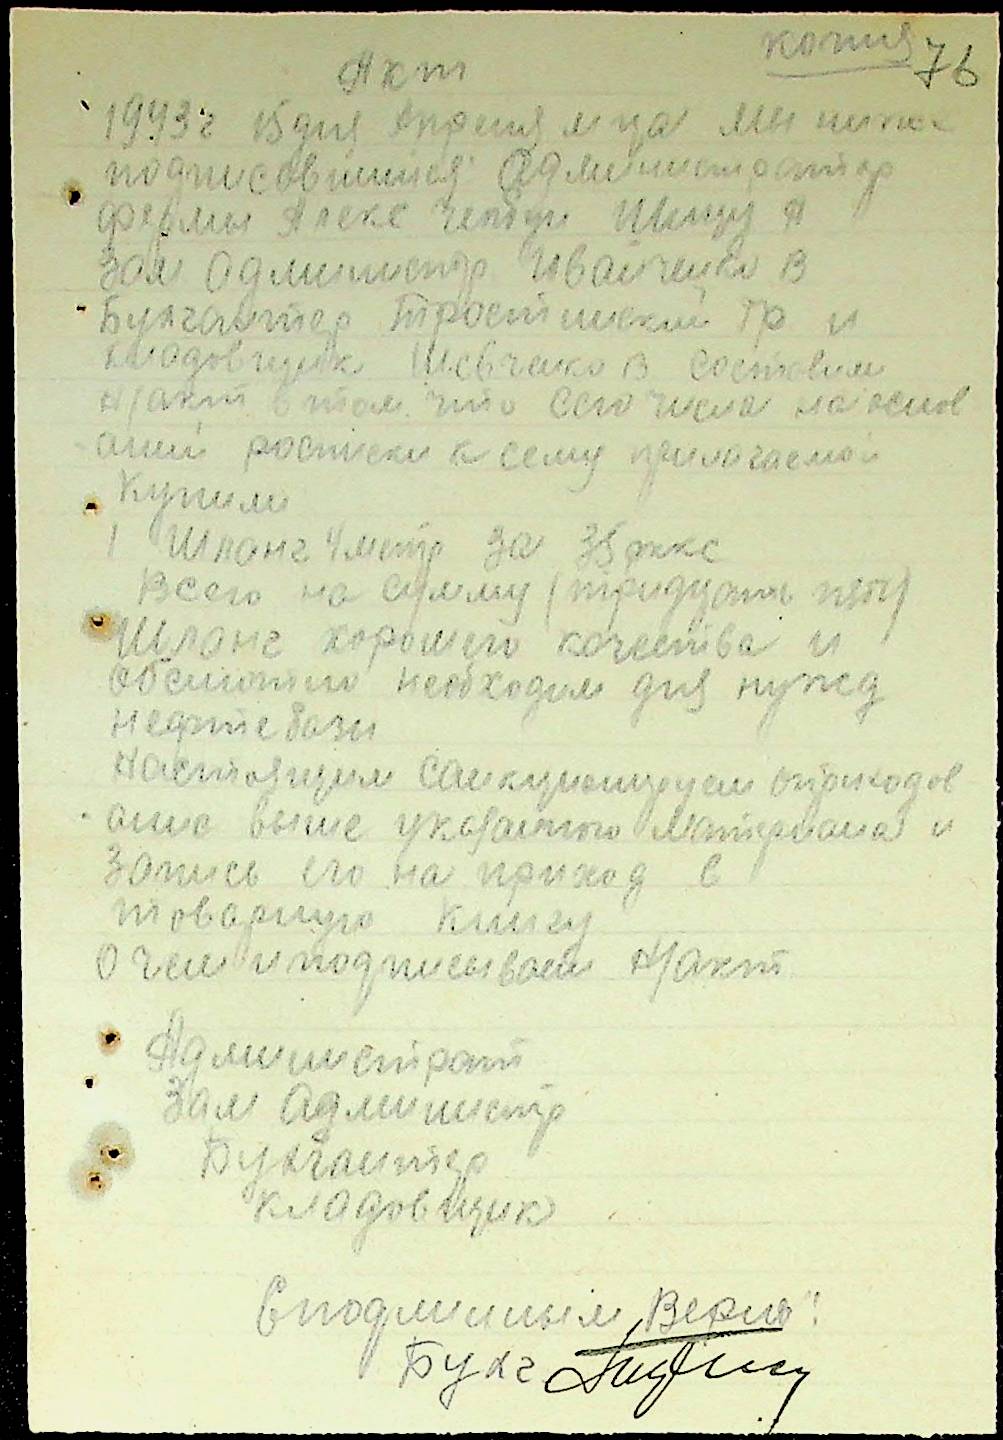 копия 76
Акт
1943г 15 дня Апреля м ца мы ниже
подписовшиися Администратор
фермы Алекс Шинцу А
Зам Администр Иванченко В
Бухгалтер Тростинский Гр и
кладовщик Шевченко В составили
Н/акт в том что сего числа на основ
ании росписки к сему прилогаемой
Купили
1 Шланг 4 метр За 35 рккс
Всего на сумму (тридцать пять)
Шланг хорошего качества и
обсолютно необходим для нужд
нефтебазы
Настоящим санкционируем оприходов
ание выше указанного материала и
Запись его на приход в
товарную Книгу
О чем и подписываем Н/акт
Администрат
Зам Администр
Бухгалтер
Кладовщик
С подлинным "Верно":
Бухг